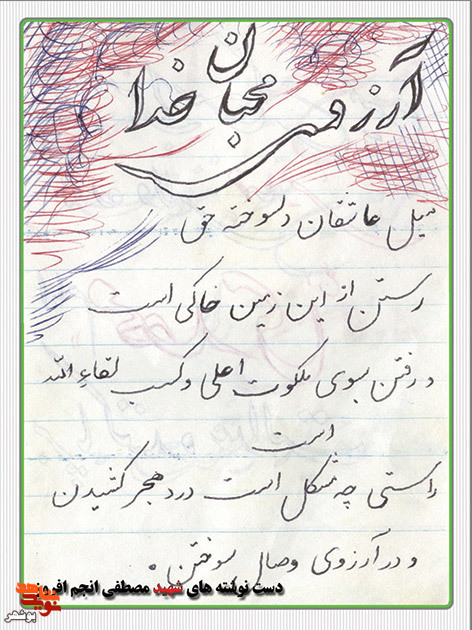 آرزوی
محبان خدا
میل عاشقان دلسوخته حق
رستن از این زمین خاکی است
و رفتن بسوی ملکوت اعلی و کسب لقاءِ الله
است
راستی چه مشکل است درد هجر کشیدن
و در آرزوی وصال سوختن.
دست نوشته های شهید مصطفی انجم افروز
نوید شاهد
بوشهر